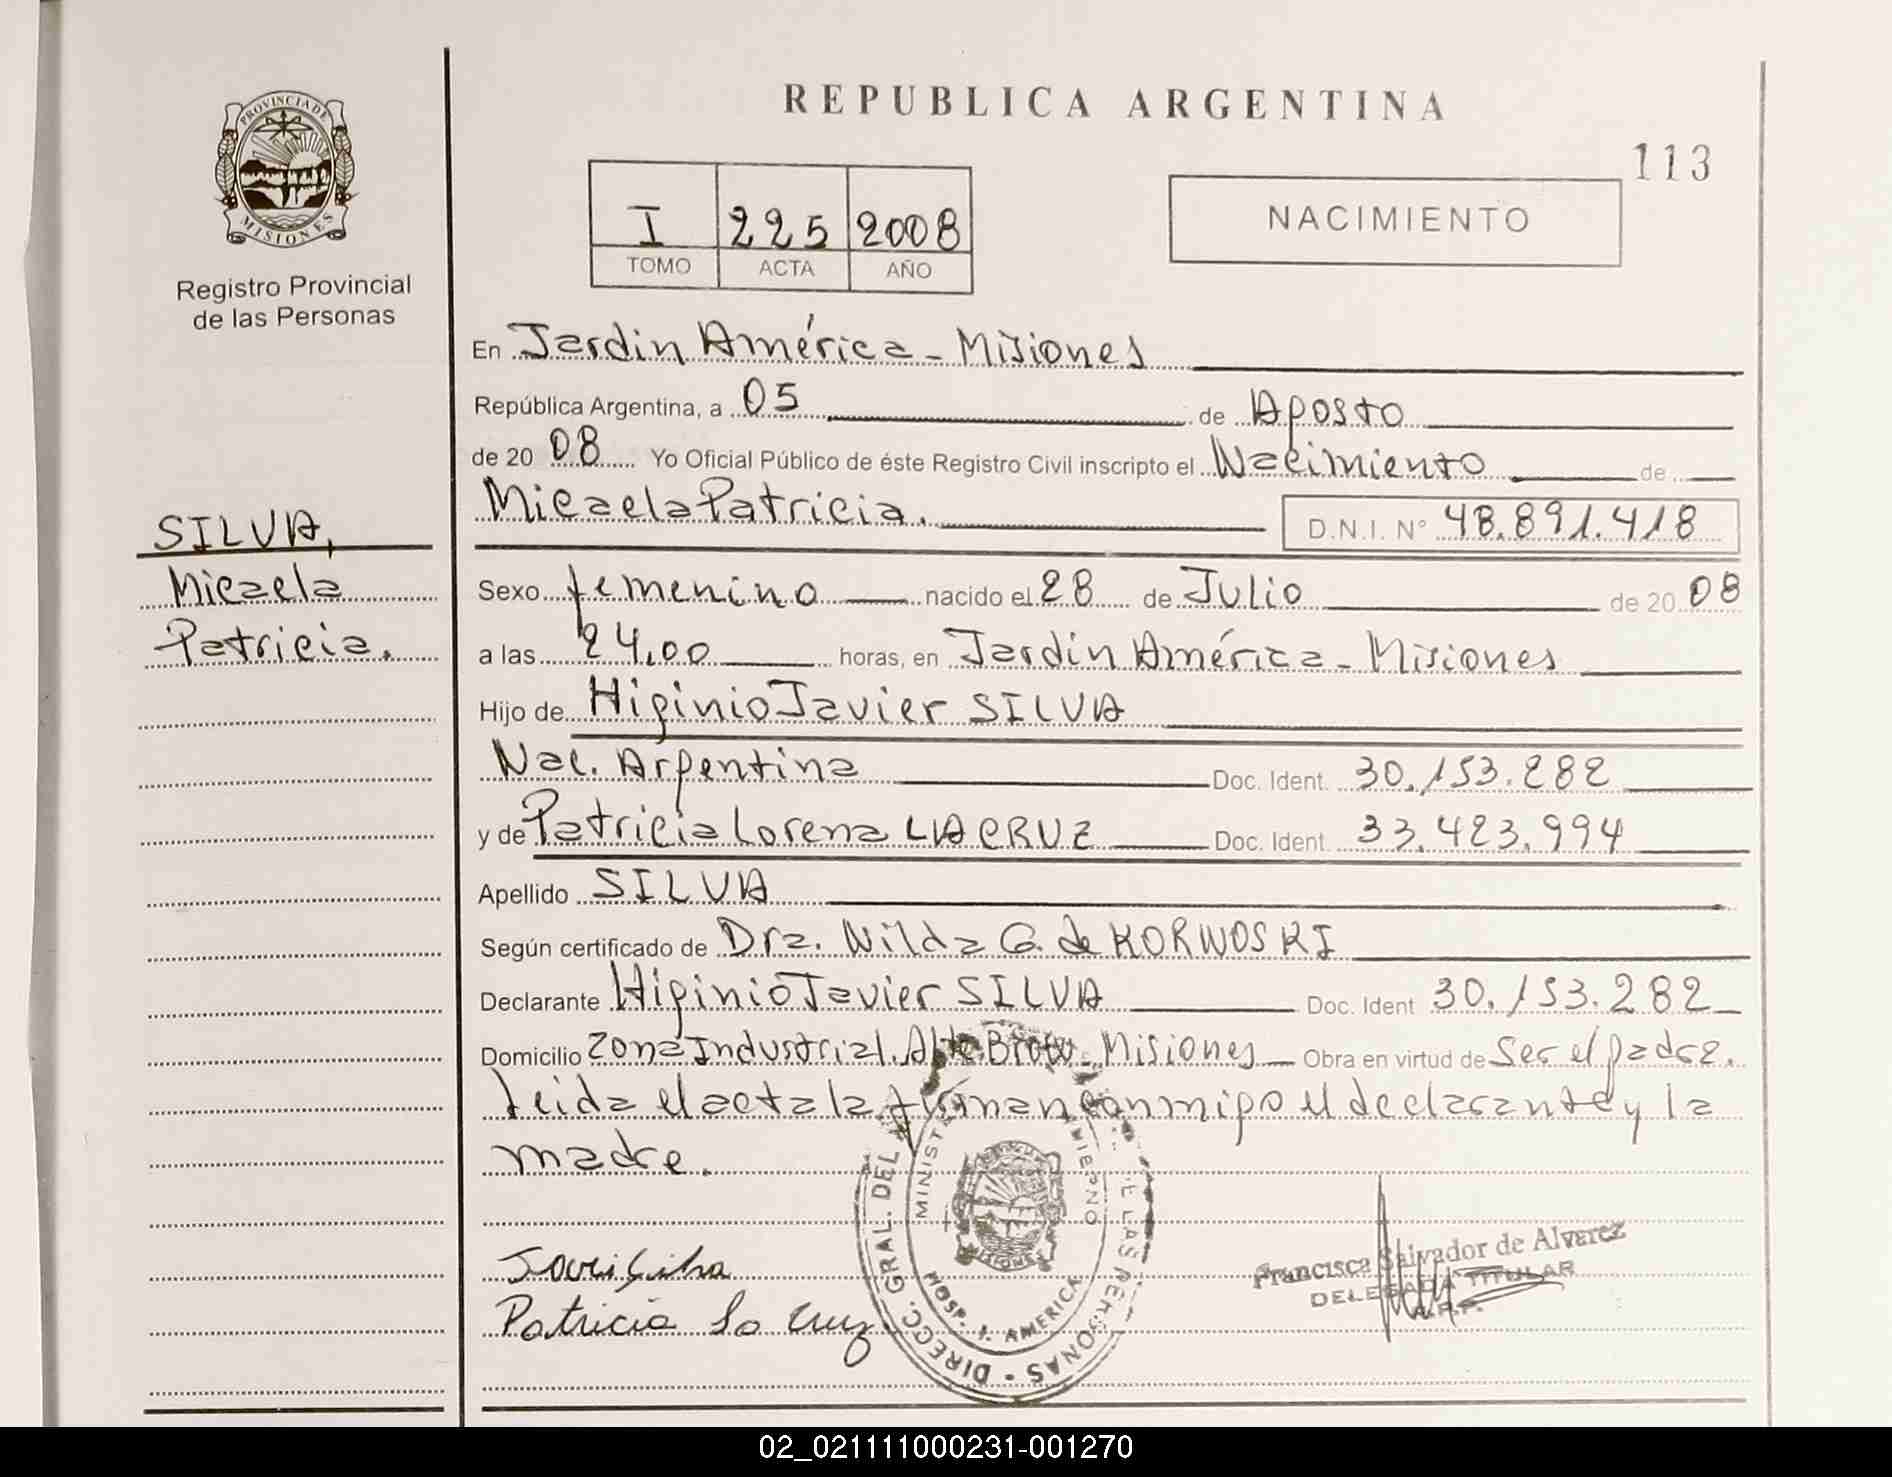 REPUBLICA ARGENTINA
113
PROVINCIA DE
MISIONES
Registro Provincial
de las Personas
I 225 2008
TOMO ACTA AÑO
NACIMIENTO
En Jardin América - Misiones
República Argentina, a 05 de Agosto
de 20 08 Yo Oficial Público de éste Registro Civil inscripto el Nacimiento de
Micaela Patricia. D.N.I. N° 48.891.418
SILVA,
Micaela
Patricia.
Sexo femenino nacido el 28 de Julio de 20 08
a las 24,00 horas, en Jardin América - Misiones
Hijo de Higinio Javier SILVA
Nac. Argentina Doc. Ident. 30.153.282
y de Patricia Lorena LA CRUZ Doc. Ident. 33.423.994
Apellido SILVA
Según certificado de Dra. Nilda G. de KORWOSKI
Declarante Higinio Javier SILVA Doc. Ident 30.153.282
Domicilio Zona Industrial. Misiones Obra en virtud de Ser el padre.
Leida el acta la firman conmigo el declarante y la
madre.
Javi Silva
Patricia La Cruz
DIRECC. GRAL. DEL LAS PERSONAS
HOSP. J. AMERICA
Francisca Salvador de Alvarez
DELEGADA TITULAR
R.P.P.
02_021111000231-001270